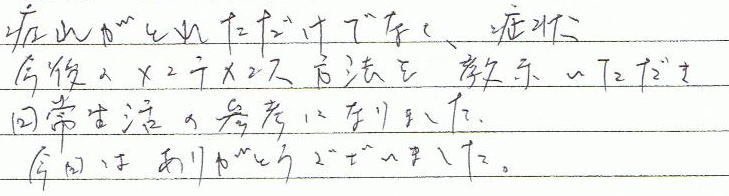 痛みがとれただけでなく、症状
今後のメンテナンス方法を教示いただき
日常生活の参考になりました。
今回はありがとうございました。